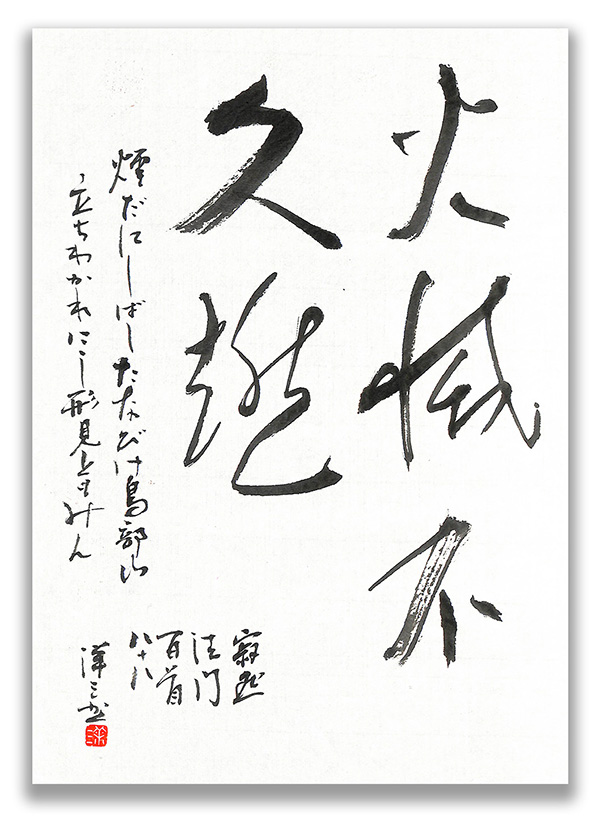 火滅不
久燃
煙だにしばしたなびけ鳥部山
立ちわかれにし形見ともみん
寂然
法門
百首
八十八